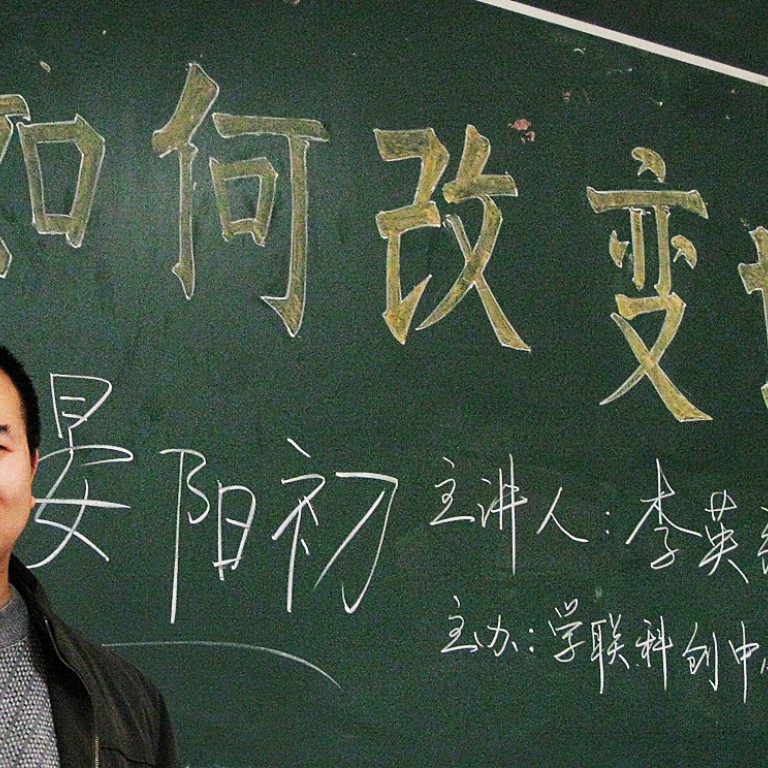 如何改变
晏阳初
主讲人：李英
主办：学联科创中